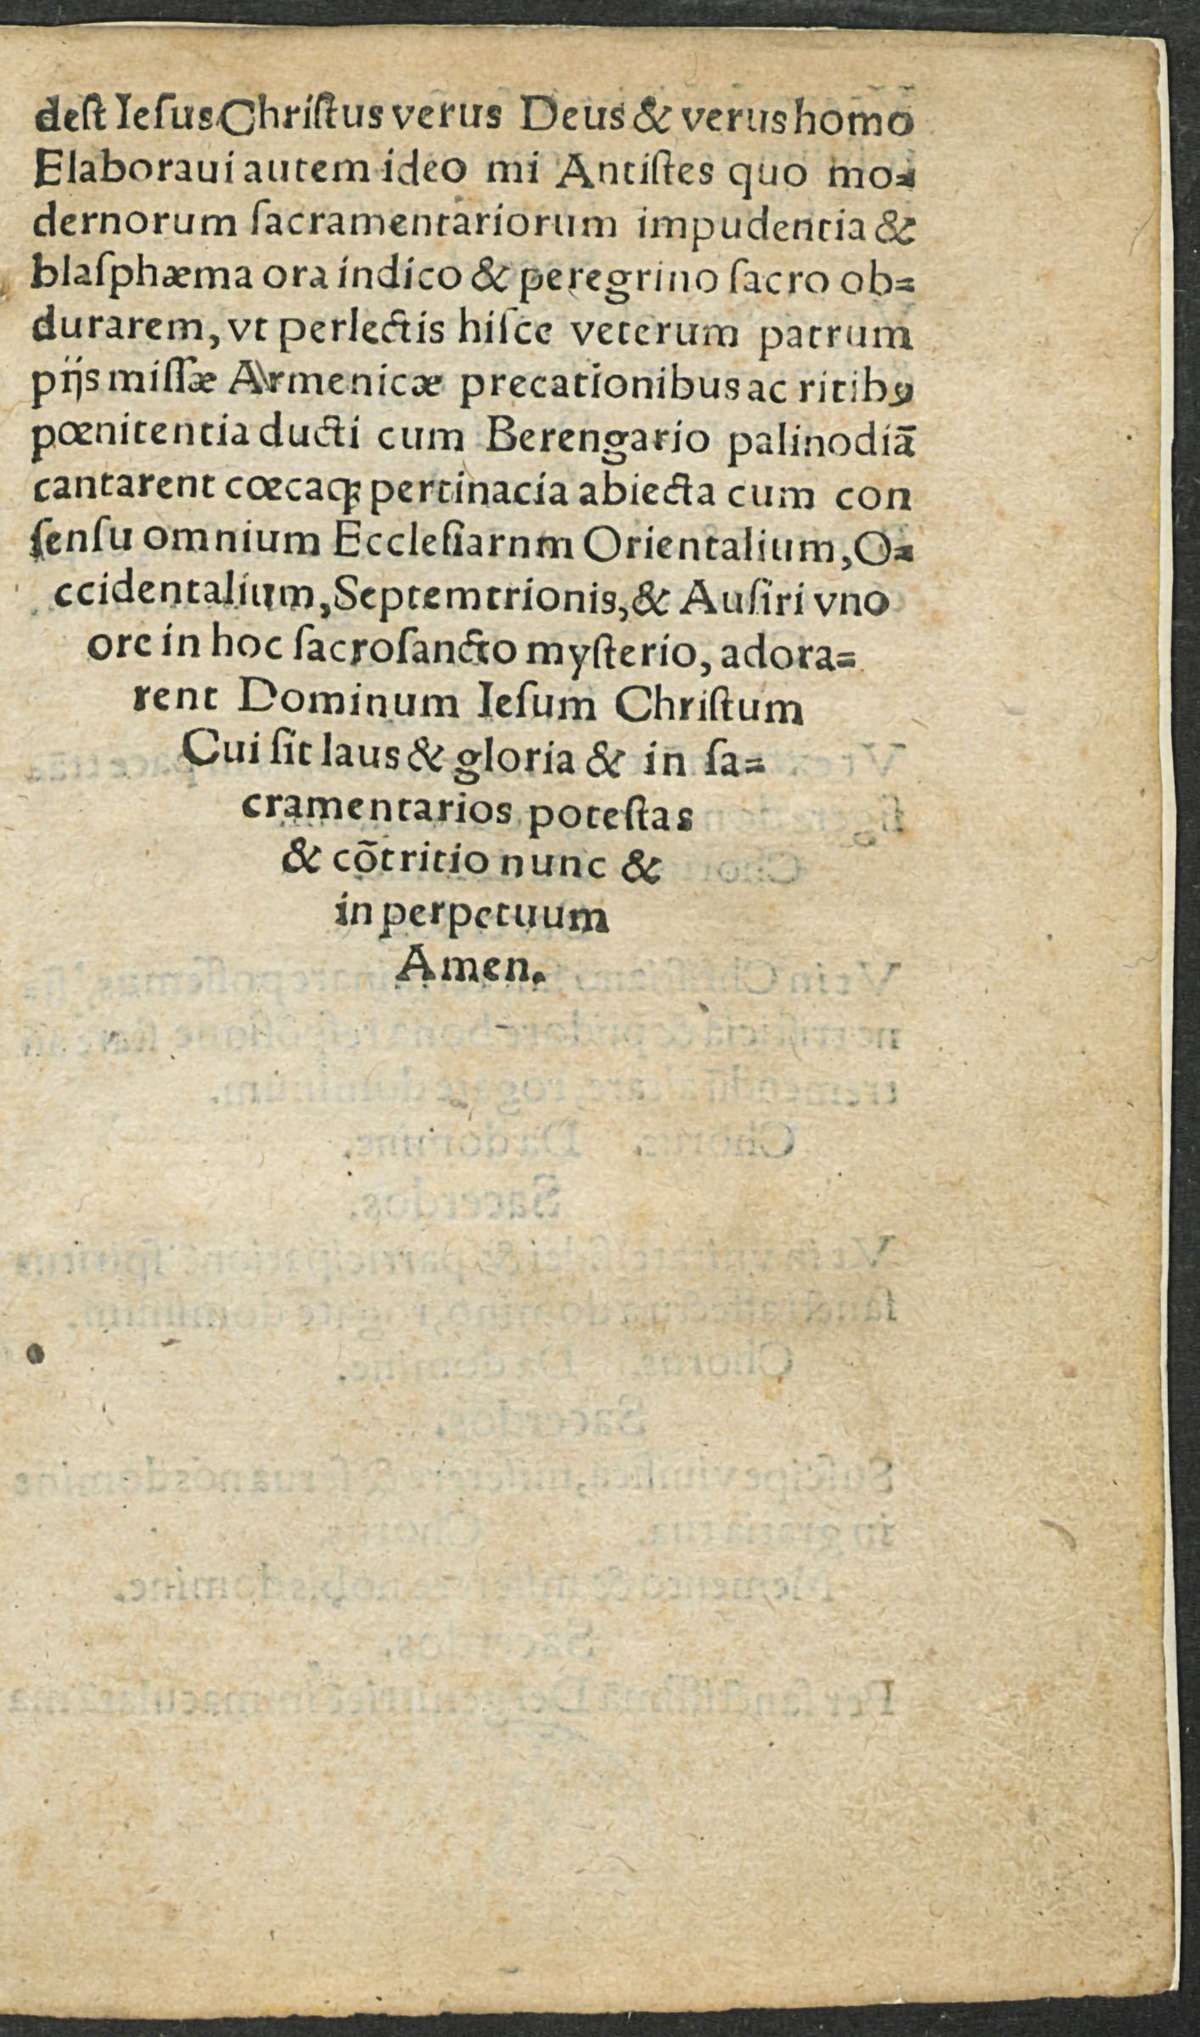 dest Iesus Christus verus Deus & verus homo
Elaboraui autem ideo mi Antistes quo mo=
dernorum sacramentariorum impudentia &
blasphæma ora indico & peregrino sacro ob=
durarem, vt perlectis hisce veterum patrum
pijs missæ Armenicæ precationibus ac ritibꝰ
pœnitentia ducti cum Berengario palinodiā
cantarent cœcaqꝫ pertinacia abiecta cum con
sensu omnium Ecclesiarnm Orientalium, O=
ccidentalium, Septemtrionis, & Ausiri vno
ore in hoc sacrosancto mysterio, adora=
rent Dominum Iesum Christum
Cui sit laus & gloria & in sa=
cramentarios potestas
& cōtritio nunc &
in perpetuum
Amen.